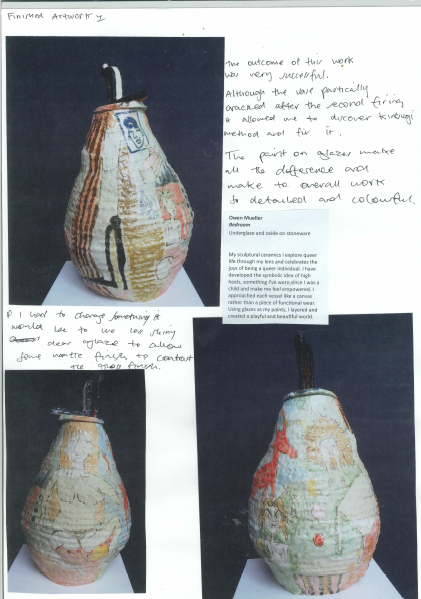 Finished Artwork 1
The outcome of this work
was very successful.
Although the vase partically
cracked after the second firing
it allowed me to discover kintsugi
method and fix it.
The paint on glazes make
all the difference and
make to overall work
so detailed and colourful.
Owen Mueller
Bedroom
Underglaze and oxide on stoneware
My sculptural ceramics I explore queer
life through my lens and celebrates the
joys of being a queer individual. I have
developed the symbolic idea of high
heels, something I've worn since I was a
child and make me feel empowered. I
approached each vessel like a canvas
rather than a piece of functional wear.
Using glazes as my paints, I layered and
created a playful and beautiful world.
If I had to change something it
would be to use less shiny
clear glaze to allow
some matte finish to contrast
the gloss finish.